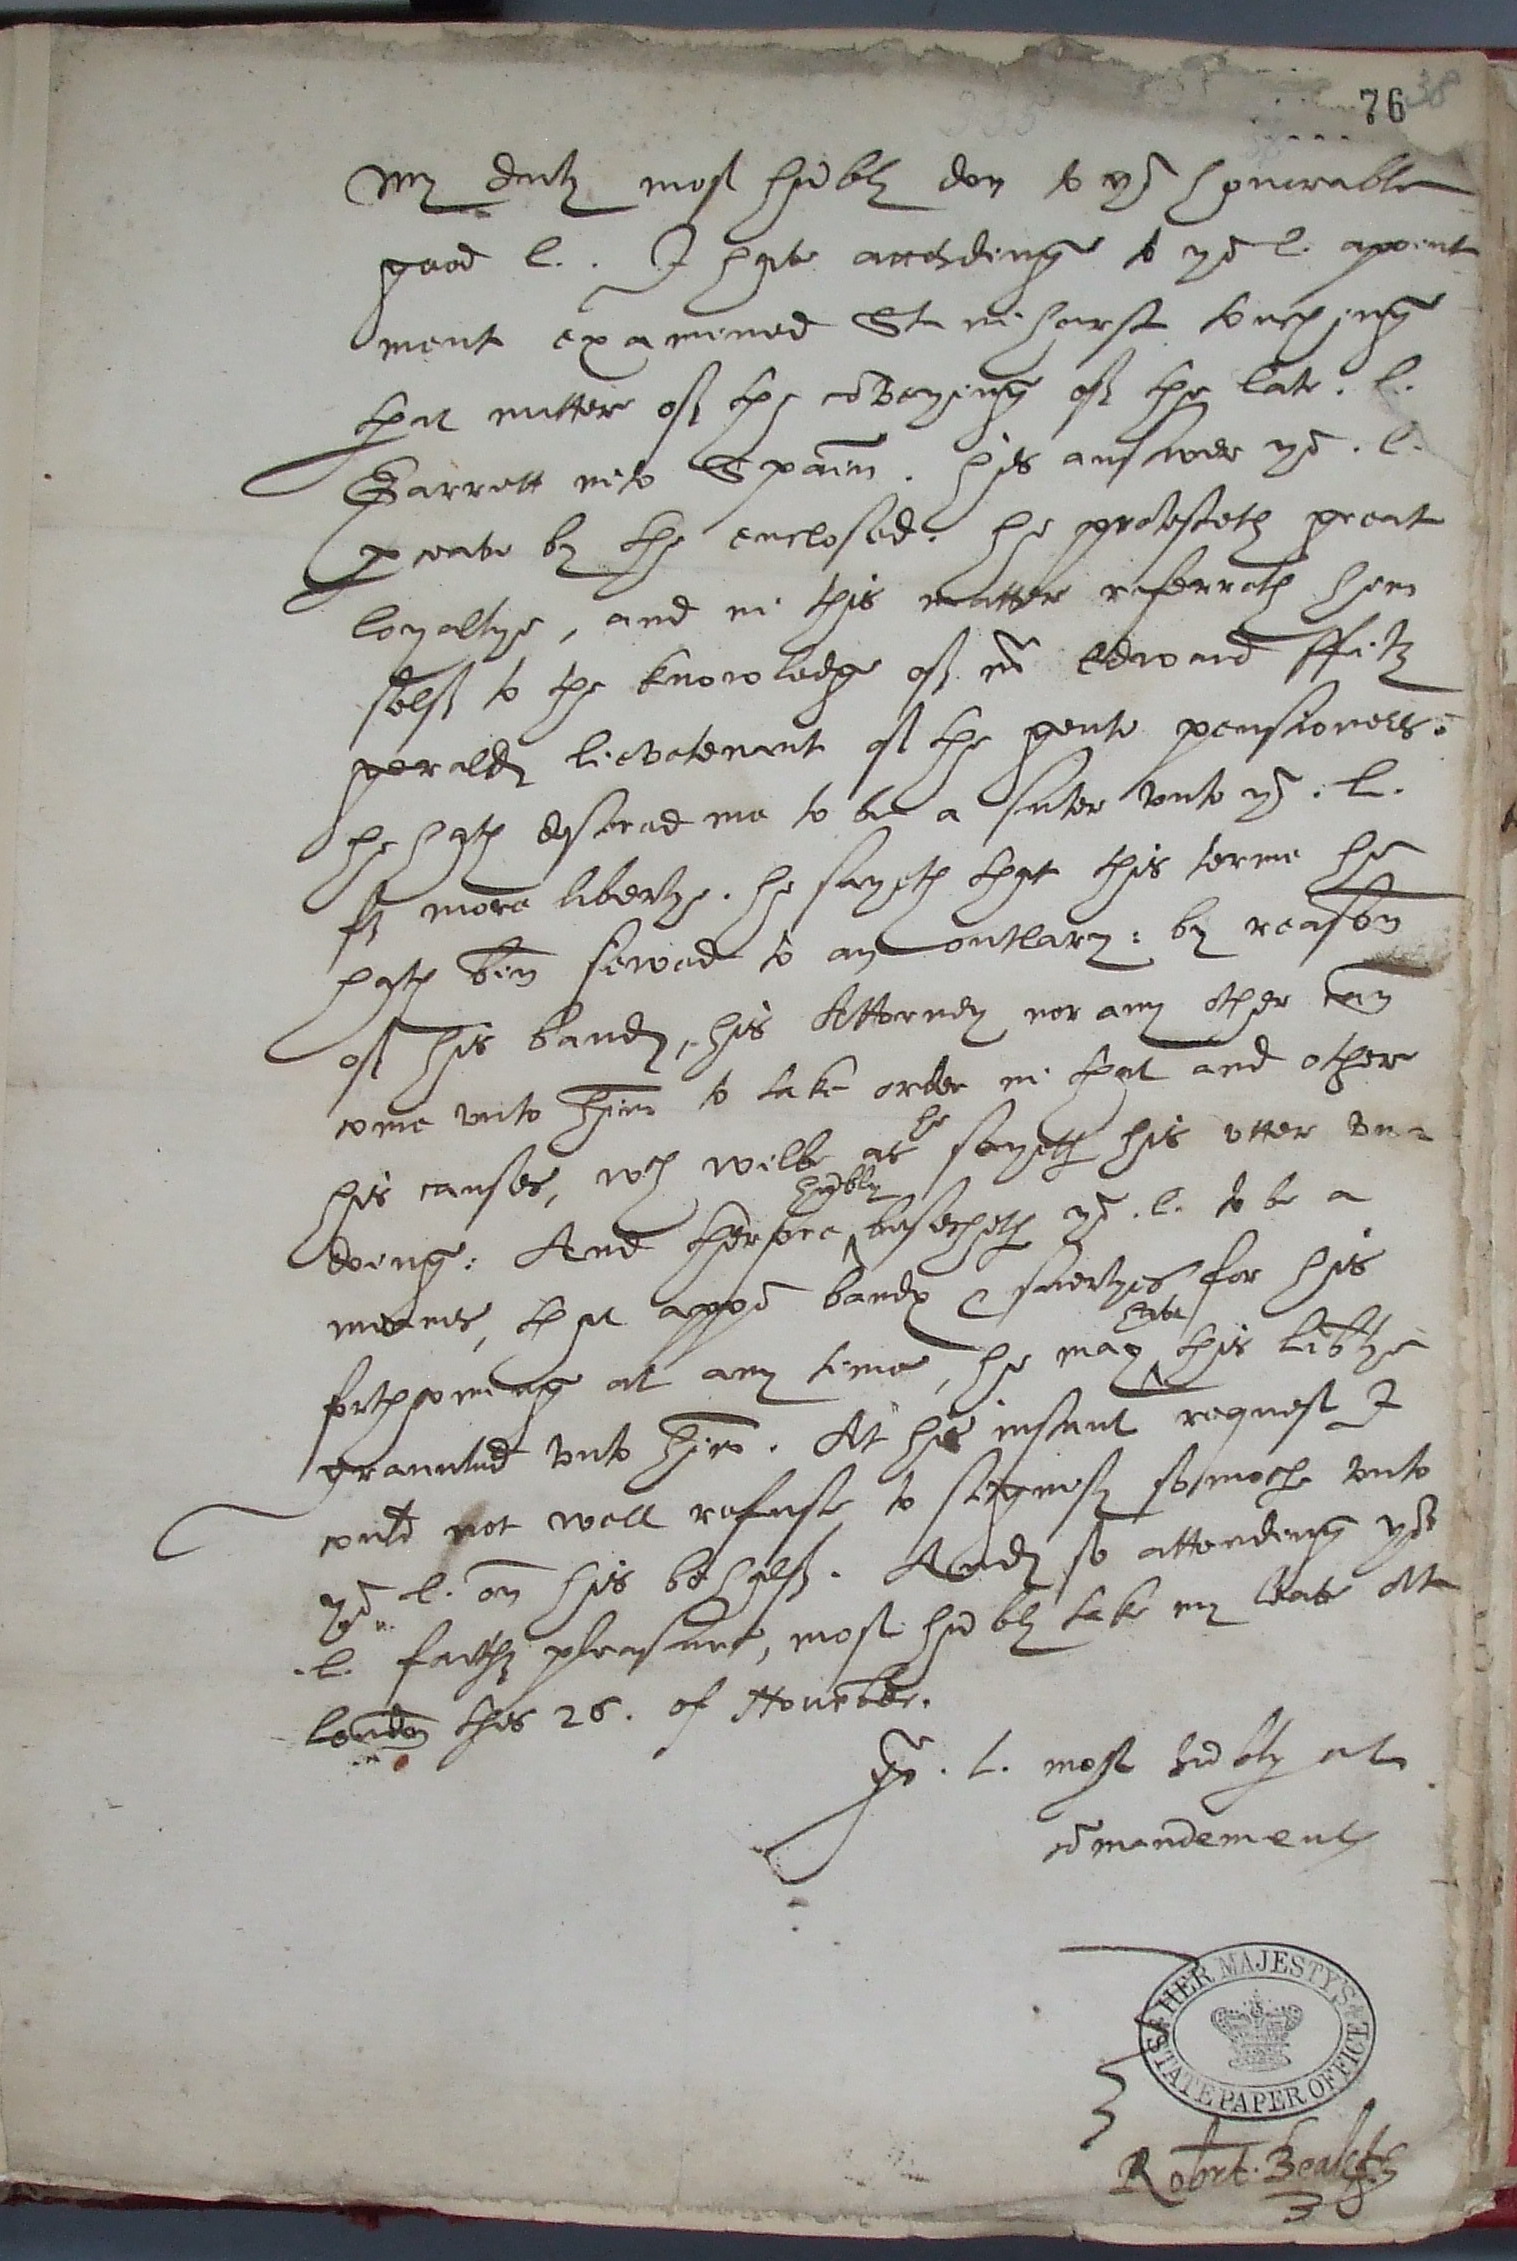 76 38
My duty most hūbly don to yor honorable
good l. . I have accordinge to yor l. apoint
ment examined Stanihurst touching
that matter of the cōveying of the late . l.
Garrett into Spain . his answer yor . l.
perceave by the enclosed. he protesteth great
loyaltye , and in this matter referreth hym
self to the knowledge of mr Edward ffitz
gerald lievetenant of the gent pensioners.
he hath desired me to be a suter unto yor . l.
for more libertye . he sayeth that this terme he
hath bin sewed to an outlary : by reason
of his band , his Attorney nor any other can
come unto him to take order in that and other
his causes, wch wilbe as he sayeth his utter un=
doing : And therfore hūbly besecheth yor . l. to be a
meanes, that uppō bandes & suertyes for his
forthcoming at any time , he may have his libtye
graunted unto him . At his instant request I
could not well refuse to signify somoche unto
yor l. on his behalf . And so attending yor
.l. further pleasure , most hūbly take my leave At
london this 26 . of Novēber.
Yor . l. most hūbly at
cōmandement
HER MAJESTY'S STATE PAPER OFFICE
Robrt. Beale